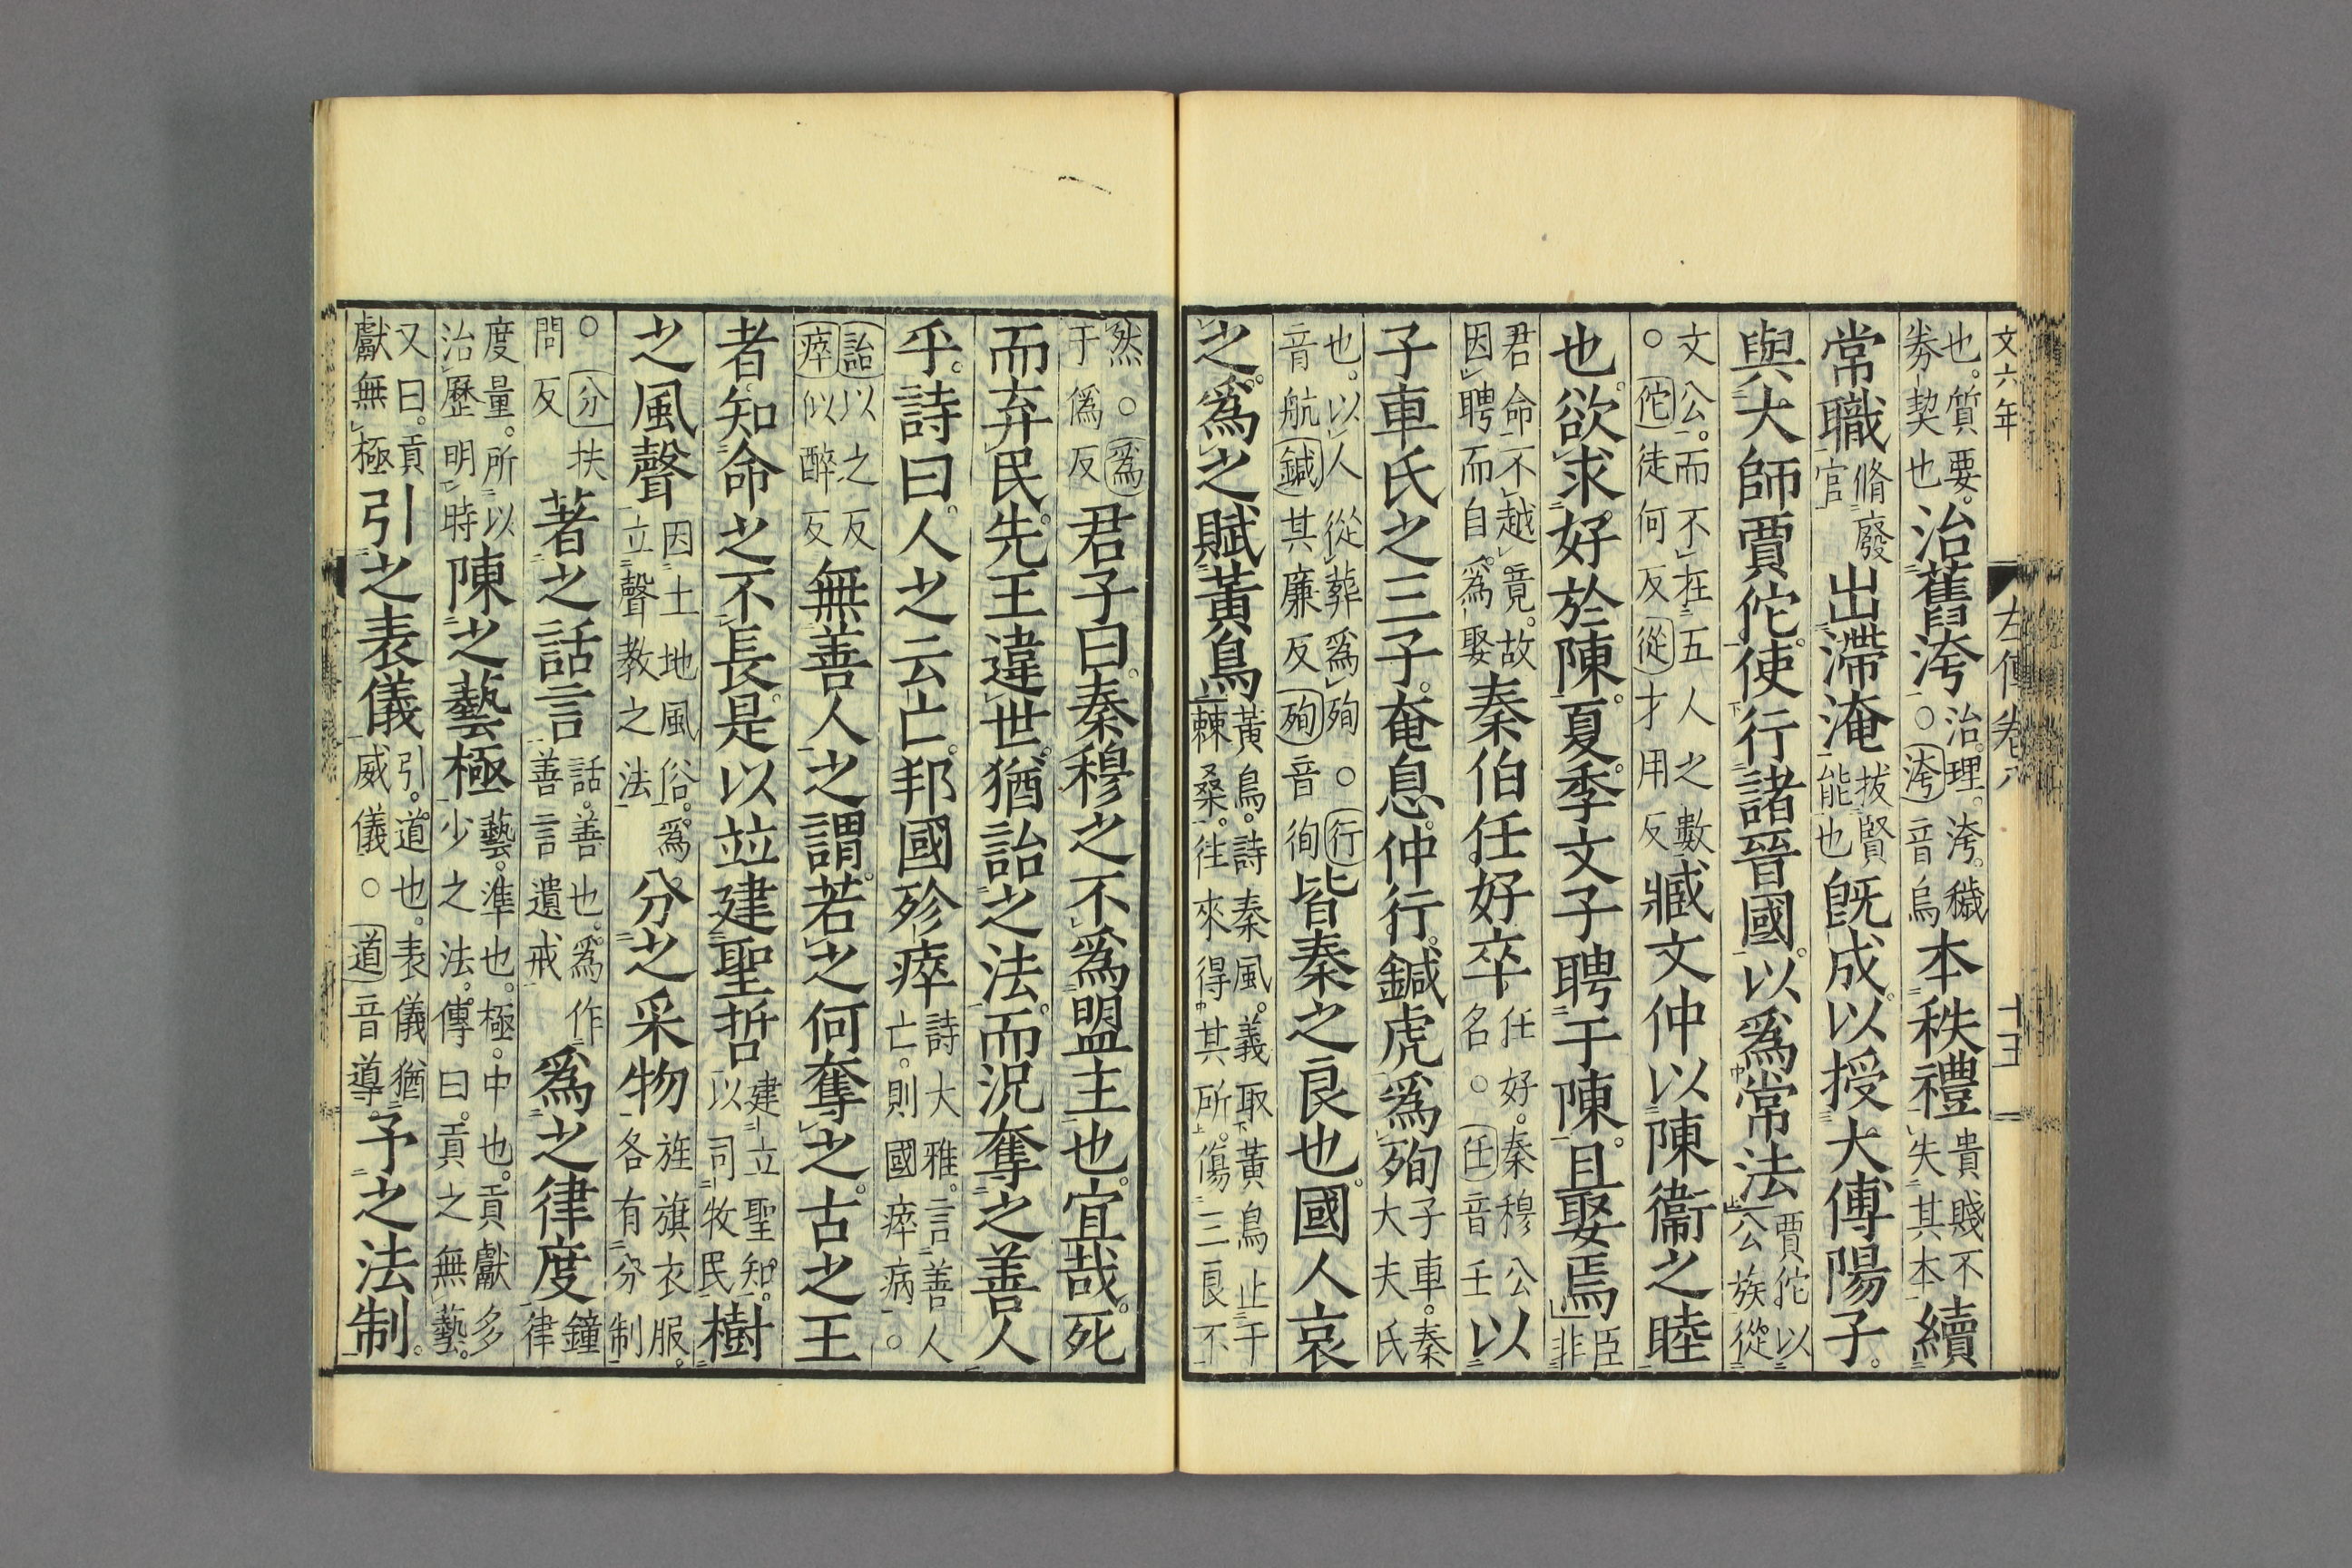 文六年 左傳卷八 十五
也。質要。券契也治舊洿治。理。洿。穢○洿音烏本秩禮貴賤不失其本續
常職脩廢官出滯淹拔賢能也既成。以授大傅陽子。
與大師賈佗。使行諸晉國。以爲常法賈佗以公族。從
文公。而不在五人之數○佗徒何反從才用反臧文仲以陳衞之睦
也。欲求好於陳。夏。季文子聘于陳。且娶焉臣非
君命不越竟。故因聘而自爲娶秦伯任好卒任好。秦穆公名。○任音壬以
子車氏之三子。奄息。仲行。鍼虎爲殉子車。秦大夫氏
也。以人從葬爲殉○行音航鍼其廉反殉音徇皆秦之良也。國人哀
之。爲之賦黃鳥黃鳥。詩秦風。義取黃鳥止于棘桑。往來得其所。傷三良不
然。○爲于僞反君子曰。秦穆之不爲盟主也。宜哉。死
而弃民。先王違世。猶詒之法。而況奪之善人
乎。詩曰。人之云亡。邦國殄瘁詩大雅。言善人亡。則國瘁病。○
詒以之反瘁似醉反無善人之謂。若之何奪之。古之王
者。知命之不長。是以竝建聖哲建立聖知。以司牧民樹
之風聲因土地風俗。爲立聲教之法分之采物旌旗衣服。各有分制
○分扶問反著之話言話。善也。爲作善言遺戒爲之律度鐘律
度量。所以治歷明時陳之藝極藝。準也。極。中也。貢獻多少之法。傳曰。貢之無藝。
又曰。貢獻無極引之表儀引。道也。表儀猶威儀○道音導。予之法制。